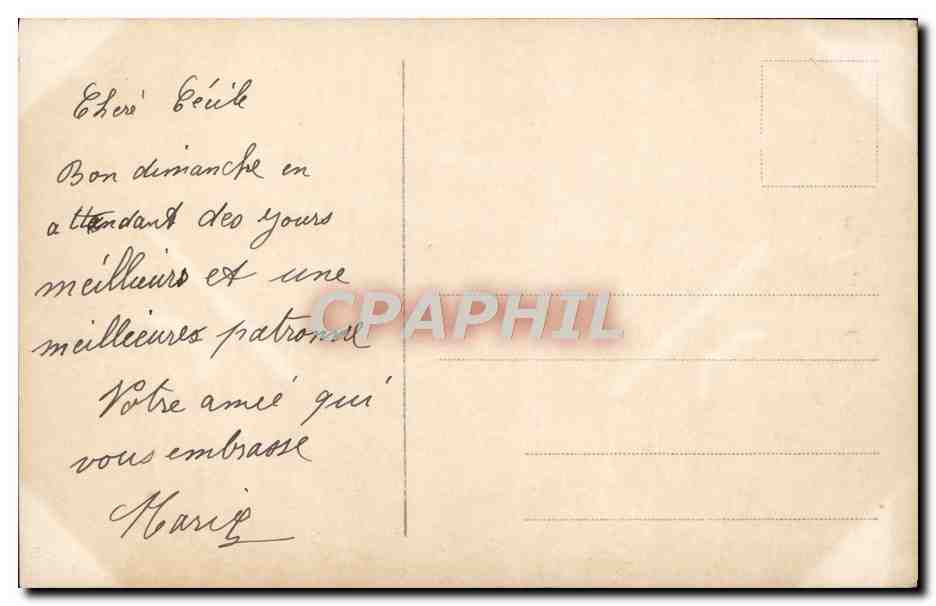 Cheré Cécile
Bon dimanche en
attendant des yours
méilleurs et une
meilleieures patronne
Votre amié qui
vous embrasse
Marie
CPAPHIL